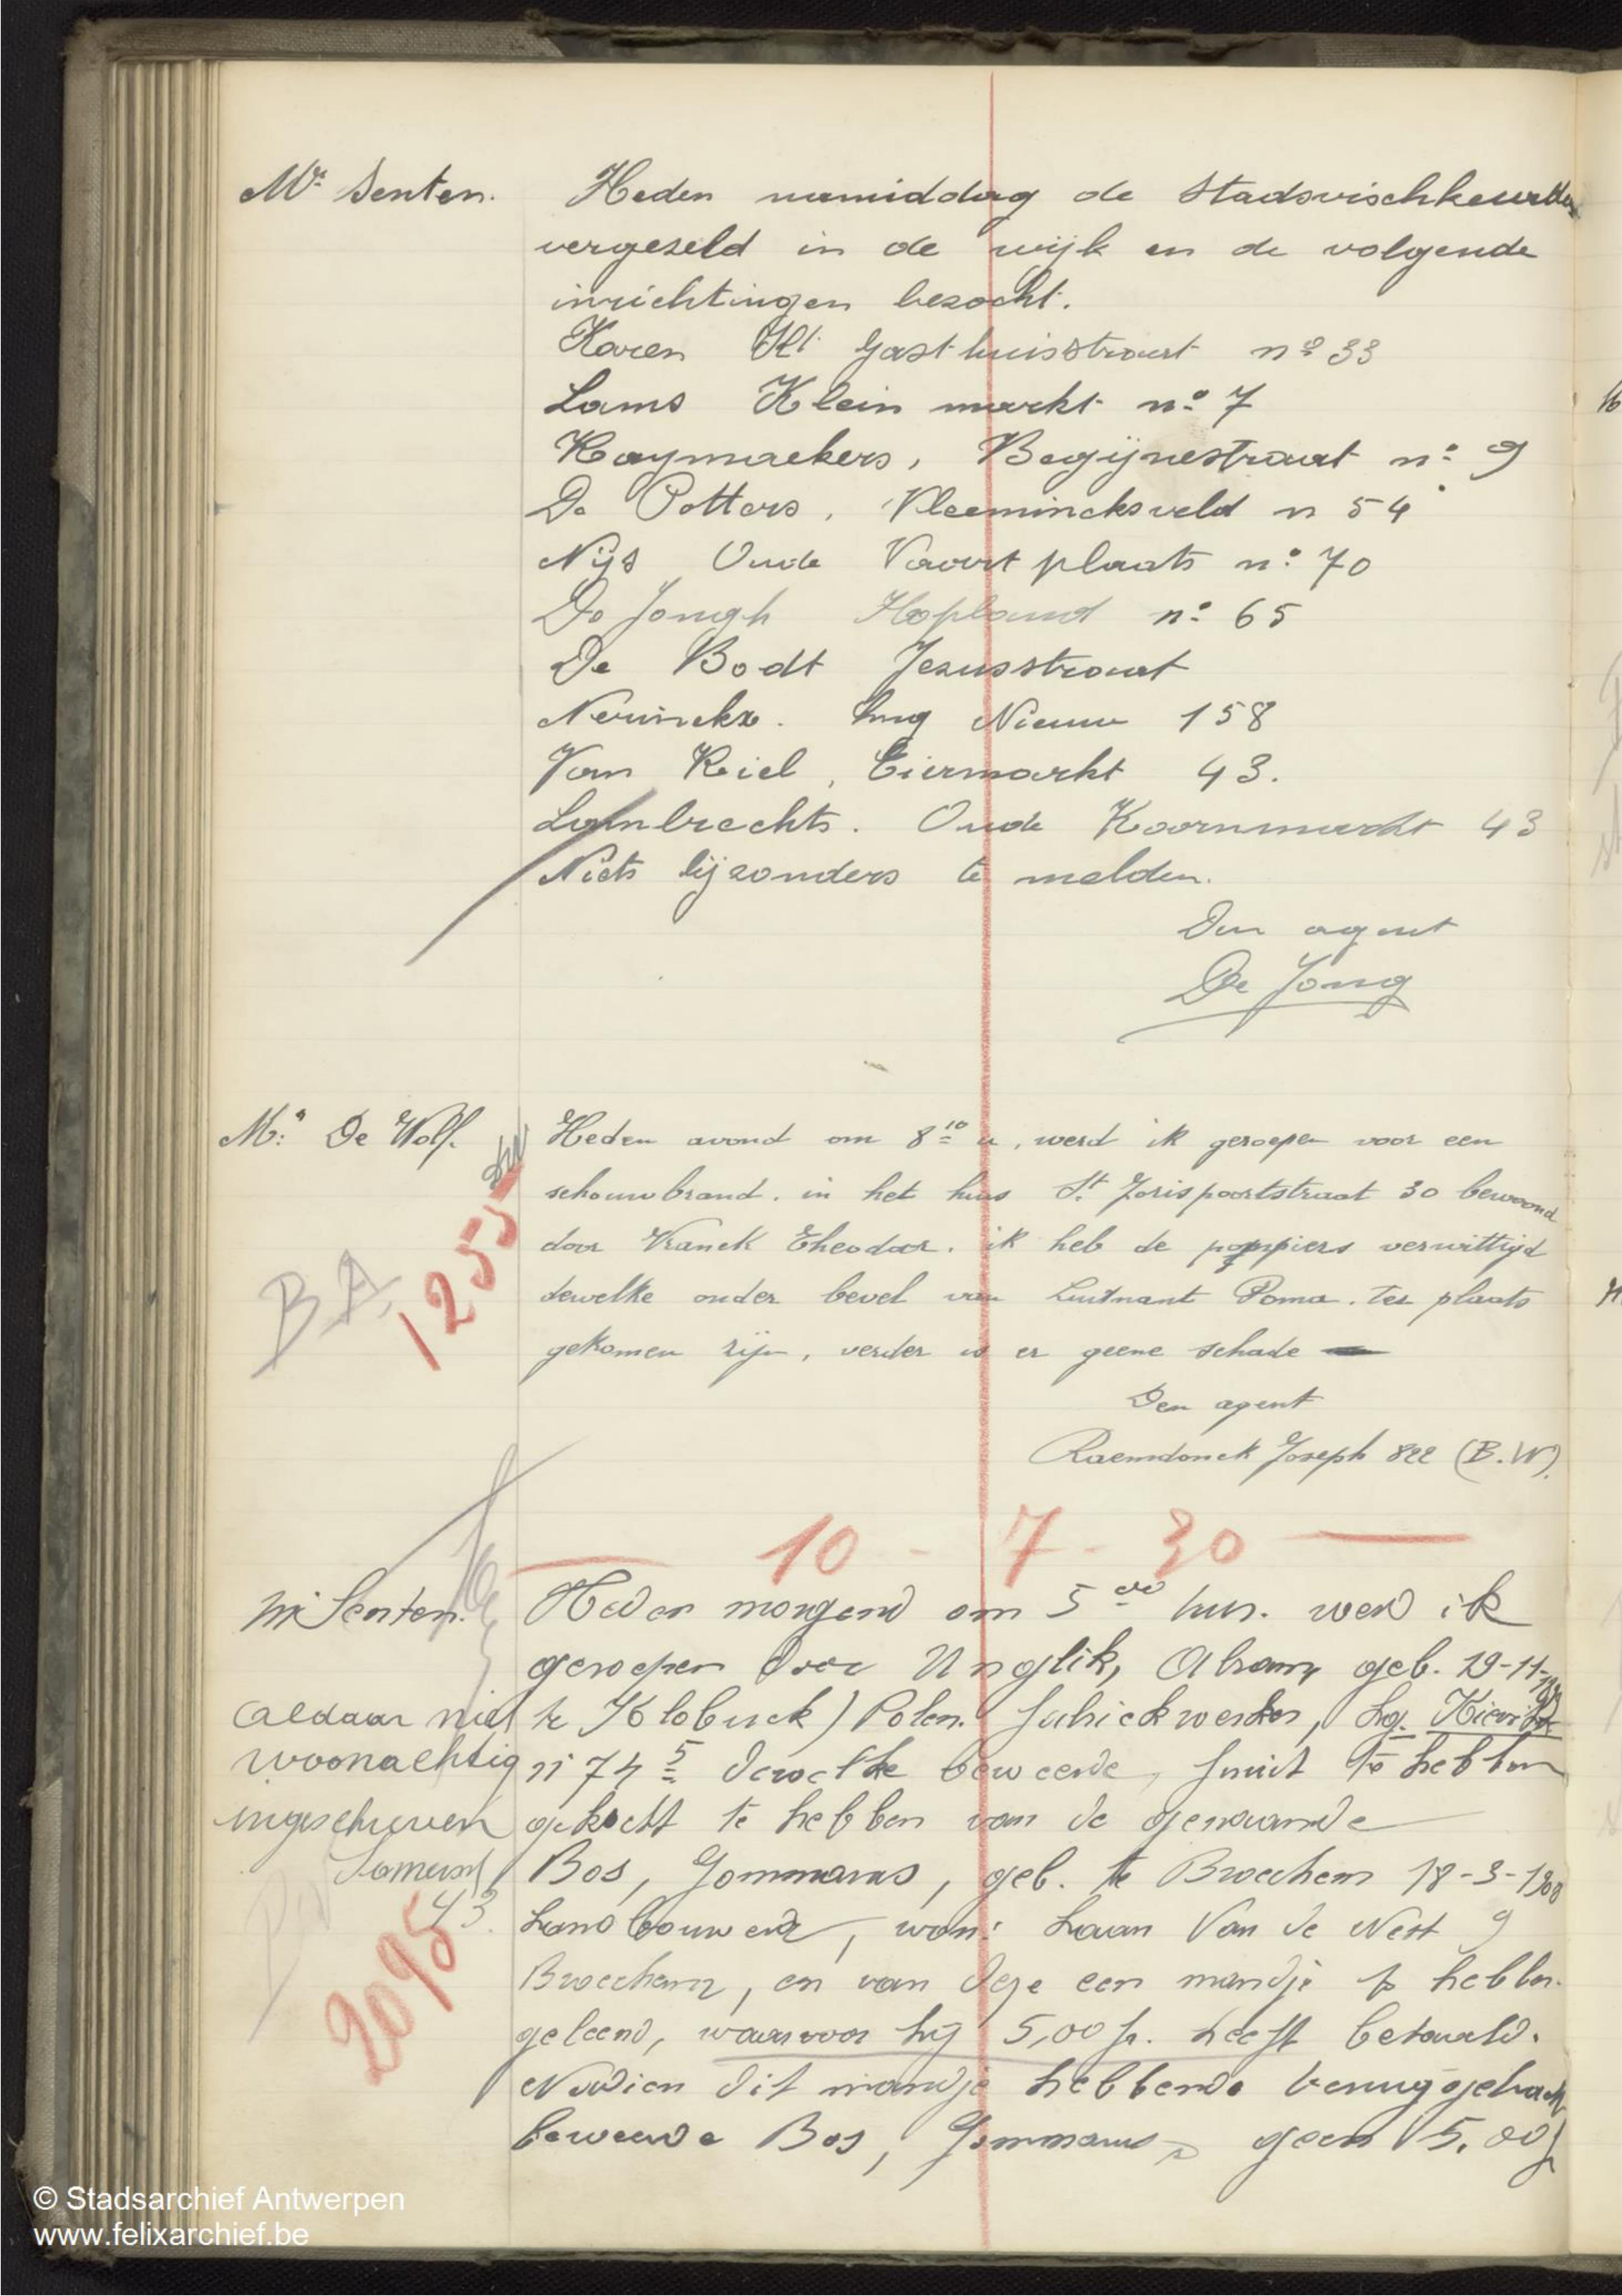 Mr Senten.
Heden namiddag de Stadsvischkeurder
vergezeld in de wijk en de volgende
inrichtingen bezocht.
Kl. Gasthuisstraat no 33
Lams Klein markt no 7
Raymaekers, Begijnestraat no 9
De Potters, Vleemincksveld n 54
Nijs Oude Vaart plaats no 70
De Jongh Hopland no 65
De Bodt Jezusstraat
Nerinckx. Lang Nieuw 158
Van Riel, Eiermarkt 43.
Lambrechts. Oude Koornmarkt 43
Niets bijzonders te melden.
Den agent
De Jong
Mr De Wolf.
Heden avond om 8 10 u, werd ik geroepen voor een
schouwbrand. in het huis St Jorispoortstraat 30 bewoond
door Vranck Theodoor. ik heb de pompiers verwittigd
dewelke onder bevel van Luitnant Poma. ter plaats
gekomen zijn, verder is er geene schade
Den agent
Raemdonck Joseph 822 (B.W).
BA
1255
10 - 7 - 30
Mr Senten.
Heden morgend om 5 00 uur. werd ik
geroepen door Unglik, Abram, geb. 19-11-
te Klobuck) Polen. schickwerker, Lg. Kievit
n 74 5 dewelke beweerde, fruit te hebben
gekocht te hebben van de genaamde
Bos, Gommarus, geb. te Broechem 18-3-1900
Landbouwer, won: Laan Van de Nest 9
Broechem, en van deze een mandje te hebben
geleend, waarvoor hij 5,00 fr. heeft betaald.
Nadien dit mandje hebbende teruggebracht
beweerde Bos, Gommarus geen 5,00 f
aldaar niet
woonachtig
ingeschreven
43.
2095
© Stadsarchief Antwerpen
www.felixarchief.be